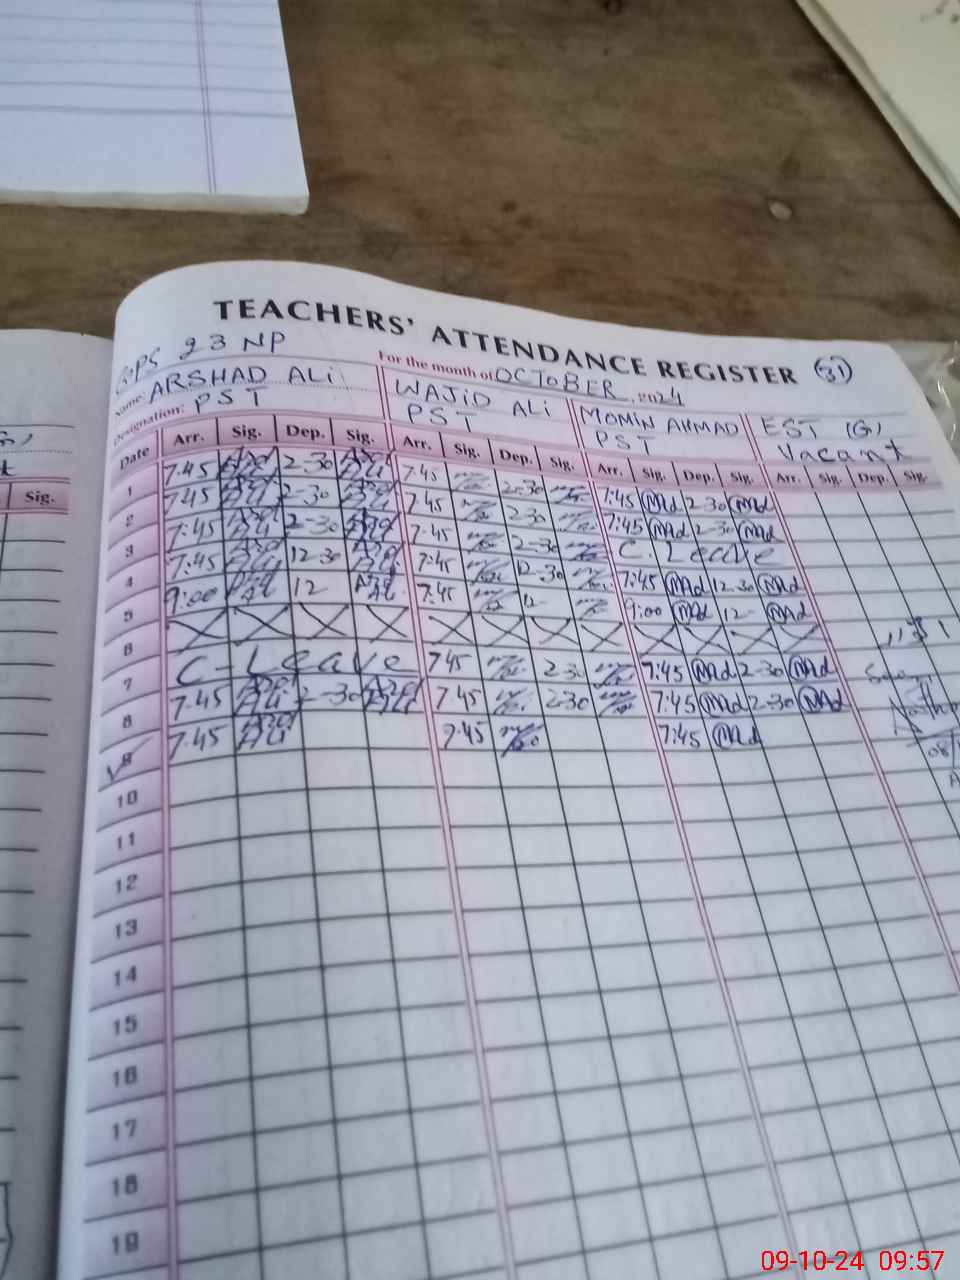 TEACHERS' ATTENDANCE REGISTER 31
GPS 23 NP
For the month of OCTOBER, 2024
Name: ARSHAD ALi WAJiD ALi MOMIN AHMAD EST (G)
Designation: PST PST PST Vacant
Date Arr. Sig. Dep. Sig. Arr. Sig. Dep. Sig. Arr. Sig. Dep. Sig. Arr. Sig. Dep. Sig.
Sig.
1 7:45 Ali 2-30 Ali 7:45 2-30 7:45 MAd 2-30 MAd
2 7:45 Ali 2-30 Ali 7:45 2-30 7:45 MAd 2-30 MAd
3 7:45 Ali 2-30 Ali 7:45 2-30 C. Leave
4 7:45 Ali 12-30 Ali 7:45 12-30 7:45 MAd 12-30 MAd
5 9:00 Ali 12 Ali 7:45 12- 9:00 MAd 12- MAd
6
7 C-Leave 7:45 2-30 7:45 MAd 2-30 MAd
8 7:45 Ali 2-30 Ali 7:45 2-30 7:45 MAd 2-30 MAd
9 7:45 Ali 7:45 7:45 MAd
10
11
12
13
14
15
16
17
18
19
09-10-24 09:57